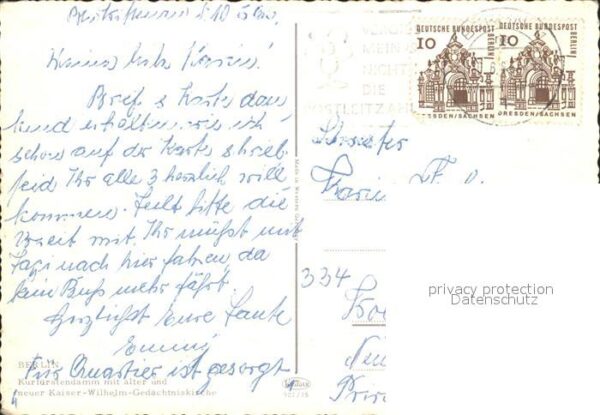 Meine liebe Karin!
Brief & Karte dan
kend erhalten, wie ich
schon auf der Karte schrieb
seid Ihr alle 3 herzlich will
kommen. Teilt bitte die
Zeit mit. Ihr müßt mit
Taxi nach hier fahren, da
kein Bus mehr fährt.
Herzlichst Eure Tante
Emmy
Für Quartier ist gesorgt
BERLIN
Kurfürstendamm mit alter und
neuer Kaiser-Wilhelm-Gedächtniskirche
VERGISS
MEIN
NICHT
DIE
POSTLEITZAHL
DEUTSCHE BUNDESPOST
BERLIN
10
DRESDEN/SACHSEN
DEUTSCHE BUNDESPOST
BERLIN
10
DRESDEN/SACHSEN
Schwester
334
privacy protection
Datenschutz